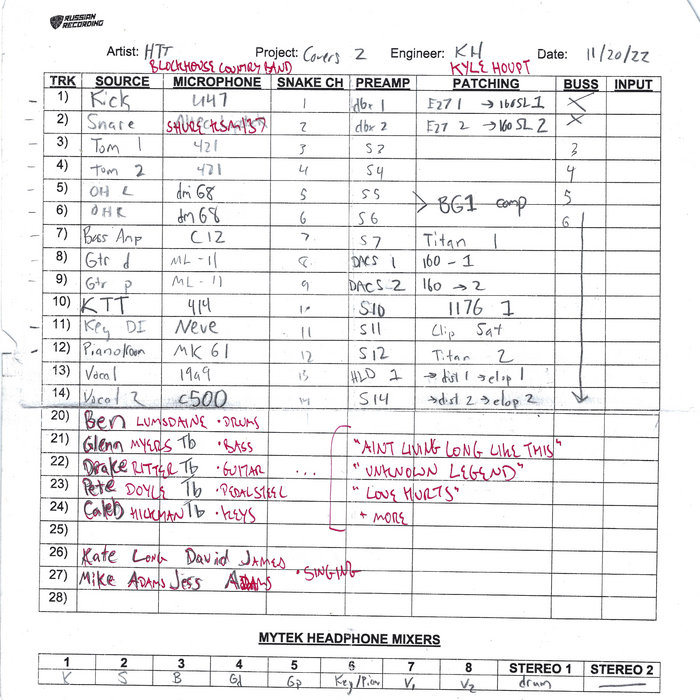 RUSSIAN RECORDING
Artist: HTT Project: Covers 2 Engineer: KH Date: 11/20/22
BLOCKHOUSE COUNTRY BAND KYLE HOUPT
TRK SOURCE MICROPHONE SNAKE CH PREAMP PATCHING BUSS INPUT
1) Kick U47 1 dbx 1 E27 1 → 160SL 1 X
2) Snare SHURE 2 dbx 2 E27 2 → 160 SL 2 X
3) Tom 1 421 3 S3 3
4) Tom 2 421 4 S4 4
5) OH L dm 68 5 S5 5
6) OHR dm 68 6 S6 BG1 comp 6
7) Bass Amp C12 7 S7 Titan 1
8) Gtr d ML-11 8 DACS 1 160 - 1
9) Gtr p ML-11 9 DACS 2 160 → 2
10) KTT 414 10 S10 1176 1
11) Key DI Neve 11 S11 Clip Sat
12) Piano/room MK 61 12 S12 Titan 2
13) Vocal 1949 13 HLD 1 → dist 1 → elop 1
14) Vocal 2 C500 14 S14 → dist 2 → elop 2
20) Ben LUMSDAINE • DRUMS
21) Glenn MYERS Tb • BASS "AINT LIVING LONG LIKE THIS"
22) Drake RITTER Tb • GUITAR ... "UNKNOWN LEGEND"
23) Pete DOYLE Tb • PEDAL STEEL "LOVE HURTS"
24) Caleb HICKMAN Tb • KEYS + MORE
25)
26) Kate LONG David JAMES
27) Mike ADAMS Jess ADAMS • SINGING
28)
MYTEK HEADPHONE MIXERS
1 2 3 4 5 6 7 8 STEREO 1 STEREO 2
K S B Gd Gp Key/Pian V1 V2 drum